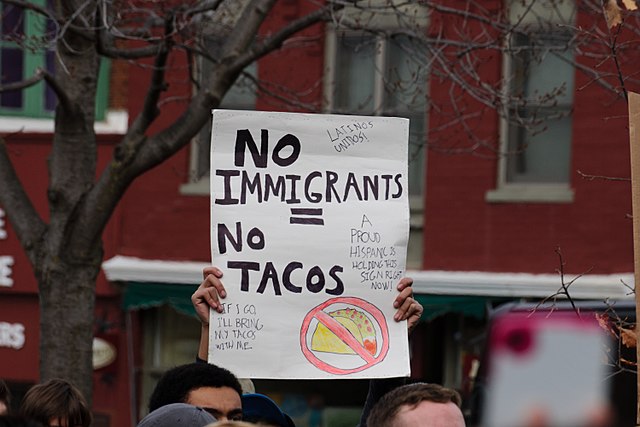 LATINOS
UNIDOS!
NO
IMMIGRANTS
=
NO
TACOS
A
PROUD
HISPANIC IS
HOLDING THIS
SIGN RIGHT
NOW!
IF I GO,
I'LL BRING
MY TACOS
WITH ME.